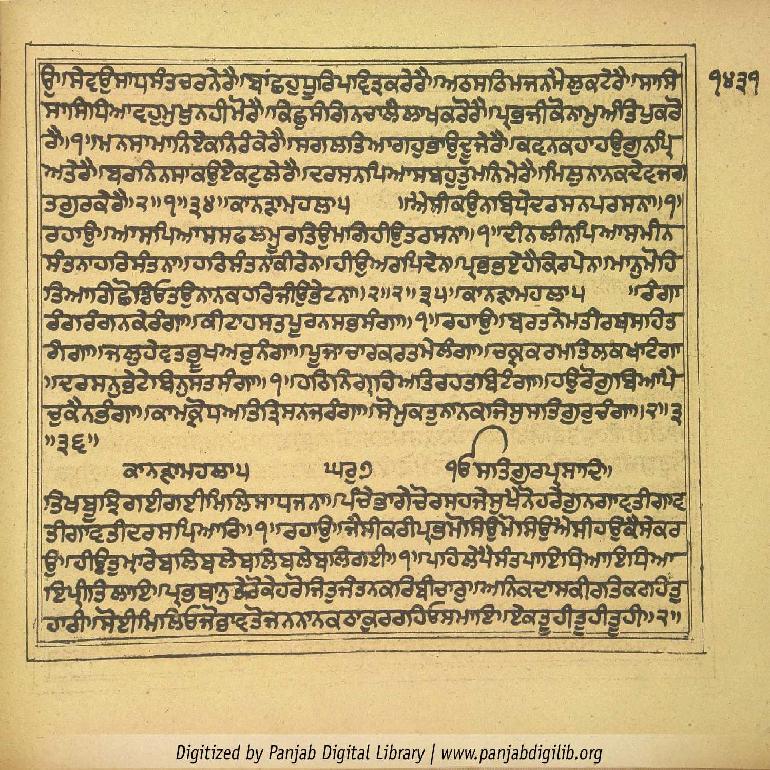 ੧੪੩੧
ਉ॥ਸੇਵਉਸਾਧਸੰਤਚਰਨੇਰੈ॥ਬਾਂਛਹੁਧੂਰਿਪਵਿਤ੍ਰਕਰੇਰੈ॥ਅਠਸਠਿਮਜਨੁਮੈਲੁਕਟੇਰੈ॥ਸਾਸਿ
ਸਾਸਿਧਿਆਵਹੁਮੁਖੁਨਹੀਮੋਰੈ॥ਕਿਛੁਸੰਗਿਨਚਾਲੈਲਾਖਕਰੋਰੈ॥ਪ੍ਰਭਜੀਕੋਨਾਮੁਅੰਤਿਪੁਕਰੋ
ਰੈ॥੧॥ਮਨਸਾਮਾਨਿਏਕਨਿਰੰਕੇਰੈ॥ਸਗਲਤਿਆਗਹੁਭਾਉਦੂਜੇਰੈ॥ਕਵਨਕਹਾਹਉਗੁਨਪ੍ਰਿ
ਅਤੇਰੈ॥ਬਰਨਿਨਸਾਕਉਏਕਟੁਲੇਰੈ॥ਦਰਸਨਪਿਆਸਬਹੁਤੁਮਨਿਮੇਰੈ॥ਮਿਲੁਨਾਨਕਦੇਵਜਗ
ਤਗੁਰਕੇਰੈ॥੨॥੧॥੩੪॥ਕਾਨੜਾਮਹਲਾ੫ ॥ਐਸੀਕਉਨਬਿਧੇਦਰਸਨਪਰਸਨਾ॥੧॥
ਰਹਾਉ॥ਆਸਪਿਆਸਸਫਲਮੂਰਤਿਉਮਗਿਹੀਉਤਰਸਨਾ॥੧॥ਦੀਨਲੀਨਪਿਆਸਮੀਨ
ਸੰਤਨਾਹਰਿਸੰਤਨਾ॥ਹਰਿਸੰਤਨਕੀਰੇਨ॥ਹੀਉਅਰਪਿਦੇਨ॥ਪ੍ਰਭਭਏਹੈਕਿਰਪੇਨ॥ਮਾਨੁਮੋਹੁ
ਤਿਆਗਿਛੋਡਿਓਤਉਨਾਨਕਹਰਿਜੀਉਭੇਟਨਾ॥੨॥੨॥੩੫॥ਕਾਨੜਾਮਹਲਾ੫ ॥ਰੰਗਾ
ਰੰਗਰੰਗਨਕੇਰੰਗਾ॥ਕੀਟਹਸਤਪੂਰਨਸਭਸੰਗਾ॥੧॥ਰਹਾਉ॥ਬਰਤਨੇਮਤੀਰਥਸਹਿਤ
ਗੰਗਾ॥ਜਲੁਹੇਵਤਭੂਖਅਰੁਨੰਗਾ॥ਪੂਜਾਚਾਰਕਰਤਮੇਲੰਗਾ॥ਚਕ੍ਰਕਰਮਤਿਲਕਖਾਟੰਗਾ
॥ਦਰਸਨੁਭੇਟੇਬਿਨੁਸਤਸੰਗਾ॥੧॥ਹਠਿਨਿਗ੍ਰਹਿਅਤਿਰਹਤਬਿਟੰਗਾ॥ਹਉਰੋਗੁਬਿਆਪੈ
ਚੁਕੈਨਭੰਗਾ॥ਕਾਮਕ੍ਰੋਧਅਤਿਤ੍ਰਿਸਨਜਰੰਗਾ॥ਸੋਮੁਕਤੁਨਾਨਕਜਿਸੁਸਤਿਗੁਰੁਚੰਗਾ॥੨॥੩
॥੩੬॥
ਕਾਨੜਾਮਹਲਾ੫ ਘਰੁ੭ ੴਸਤਿਗੁਰਪ੍ਰਸਾਦਿ॥
ਤਿਖਬੂਝਿਗਈਗਈਮਿਲਿਸਾਧਜਨਾ॥ਪੰਚਭਾਗੇਚੋਰਸਹਜੇਸੁਖੈਨੋਹਰੇਗੁਨਗਾਵਤੀਗਾਵ
ਤੀਗਾਵਤੀਦਰਸਪਿਆਰਿ॥੧॥ਰਹਾਉ॥ਜੈਸੀਕਰੀਪ੍ਰਭਮੋਸਿਉਮੋਸਿਉਐਸੀਹਉਕੈਸੇਕਰ
ਉ॥ਹੀਉਤੁਮਾਰੇਬਲਿਬਲੇਬਲਿਬਲੇਬਲਿਗਈ॥੧॥ਪਹਿਲੇਪੈਸੰਤਪਾਇਧਿਆਇਧਿਆ
ਇਪ੍ਰੀਤਿਲਾਇ॥ਪ੍ਰਭਥਾਨੁਤੇਰੋਕੇਹਰੋਜਿਤੁਜੰਤਨਕਰਿਬੀਚਾਰੁ॥ਅਨਿਕਦਾਸਕੀਰਤਿਕਰਹਿਤੁ
ਹਾਰੀ॥ਸੋਈਮਿਲਿਓਜੋਭਾਵਤੋਜਨਨਾਨਕਠਾਕੁਰਰਹਿਓਸਮਾਇ॥ਏਕਤੂਹੀਤੂਹੀਤੂਹੀ॥੨॥
Digitized by Panjab Digital Library | www.panjabdigilib.org